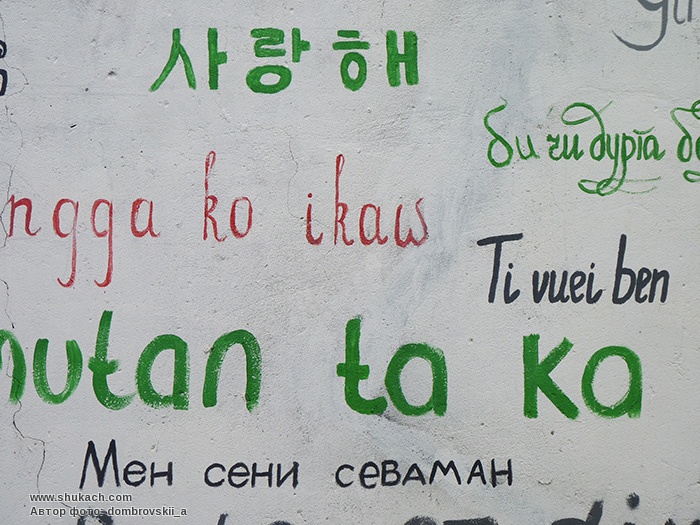 사랑해
би чи дурта
ngga ko ikaw
Ti vuei ben
nutan ta ka
Мен сени севаман
www.shukach.com
Автор фото: dombrovskii_a